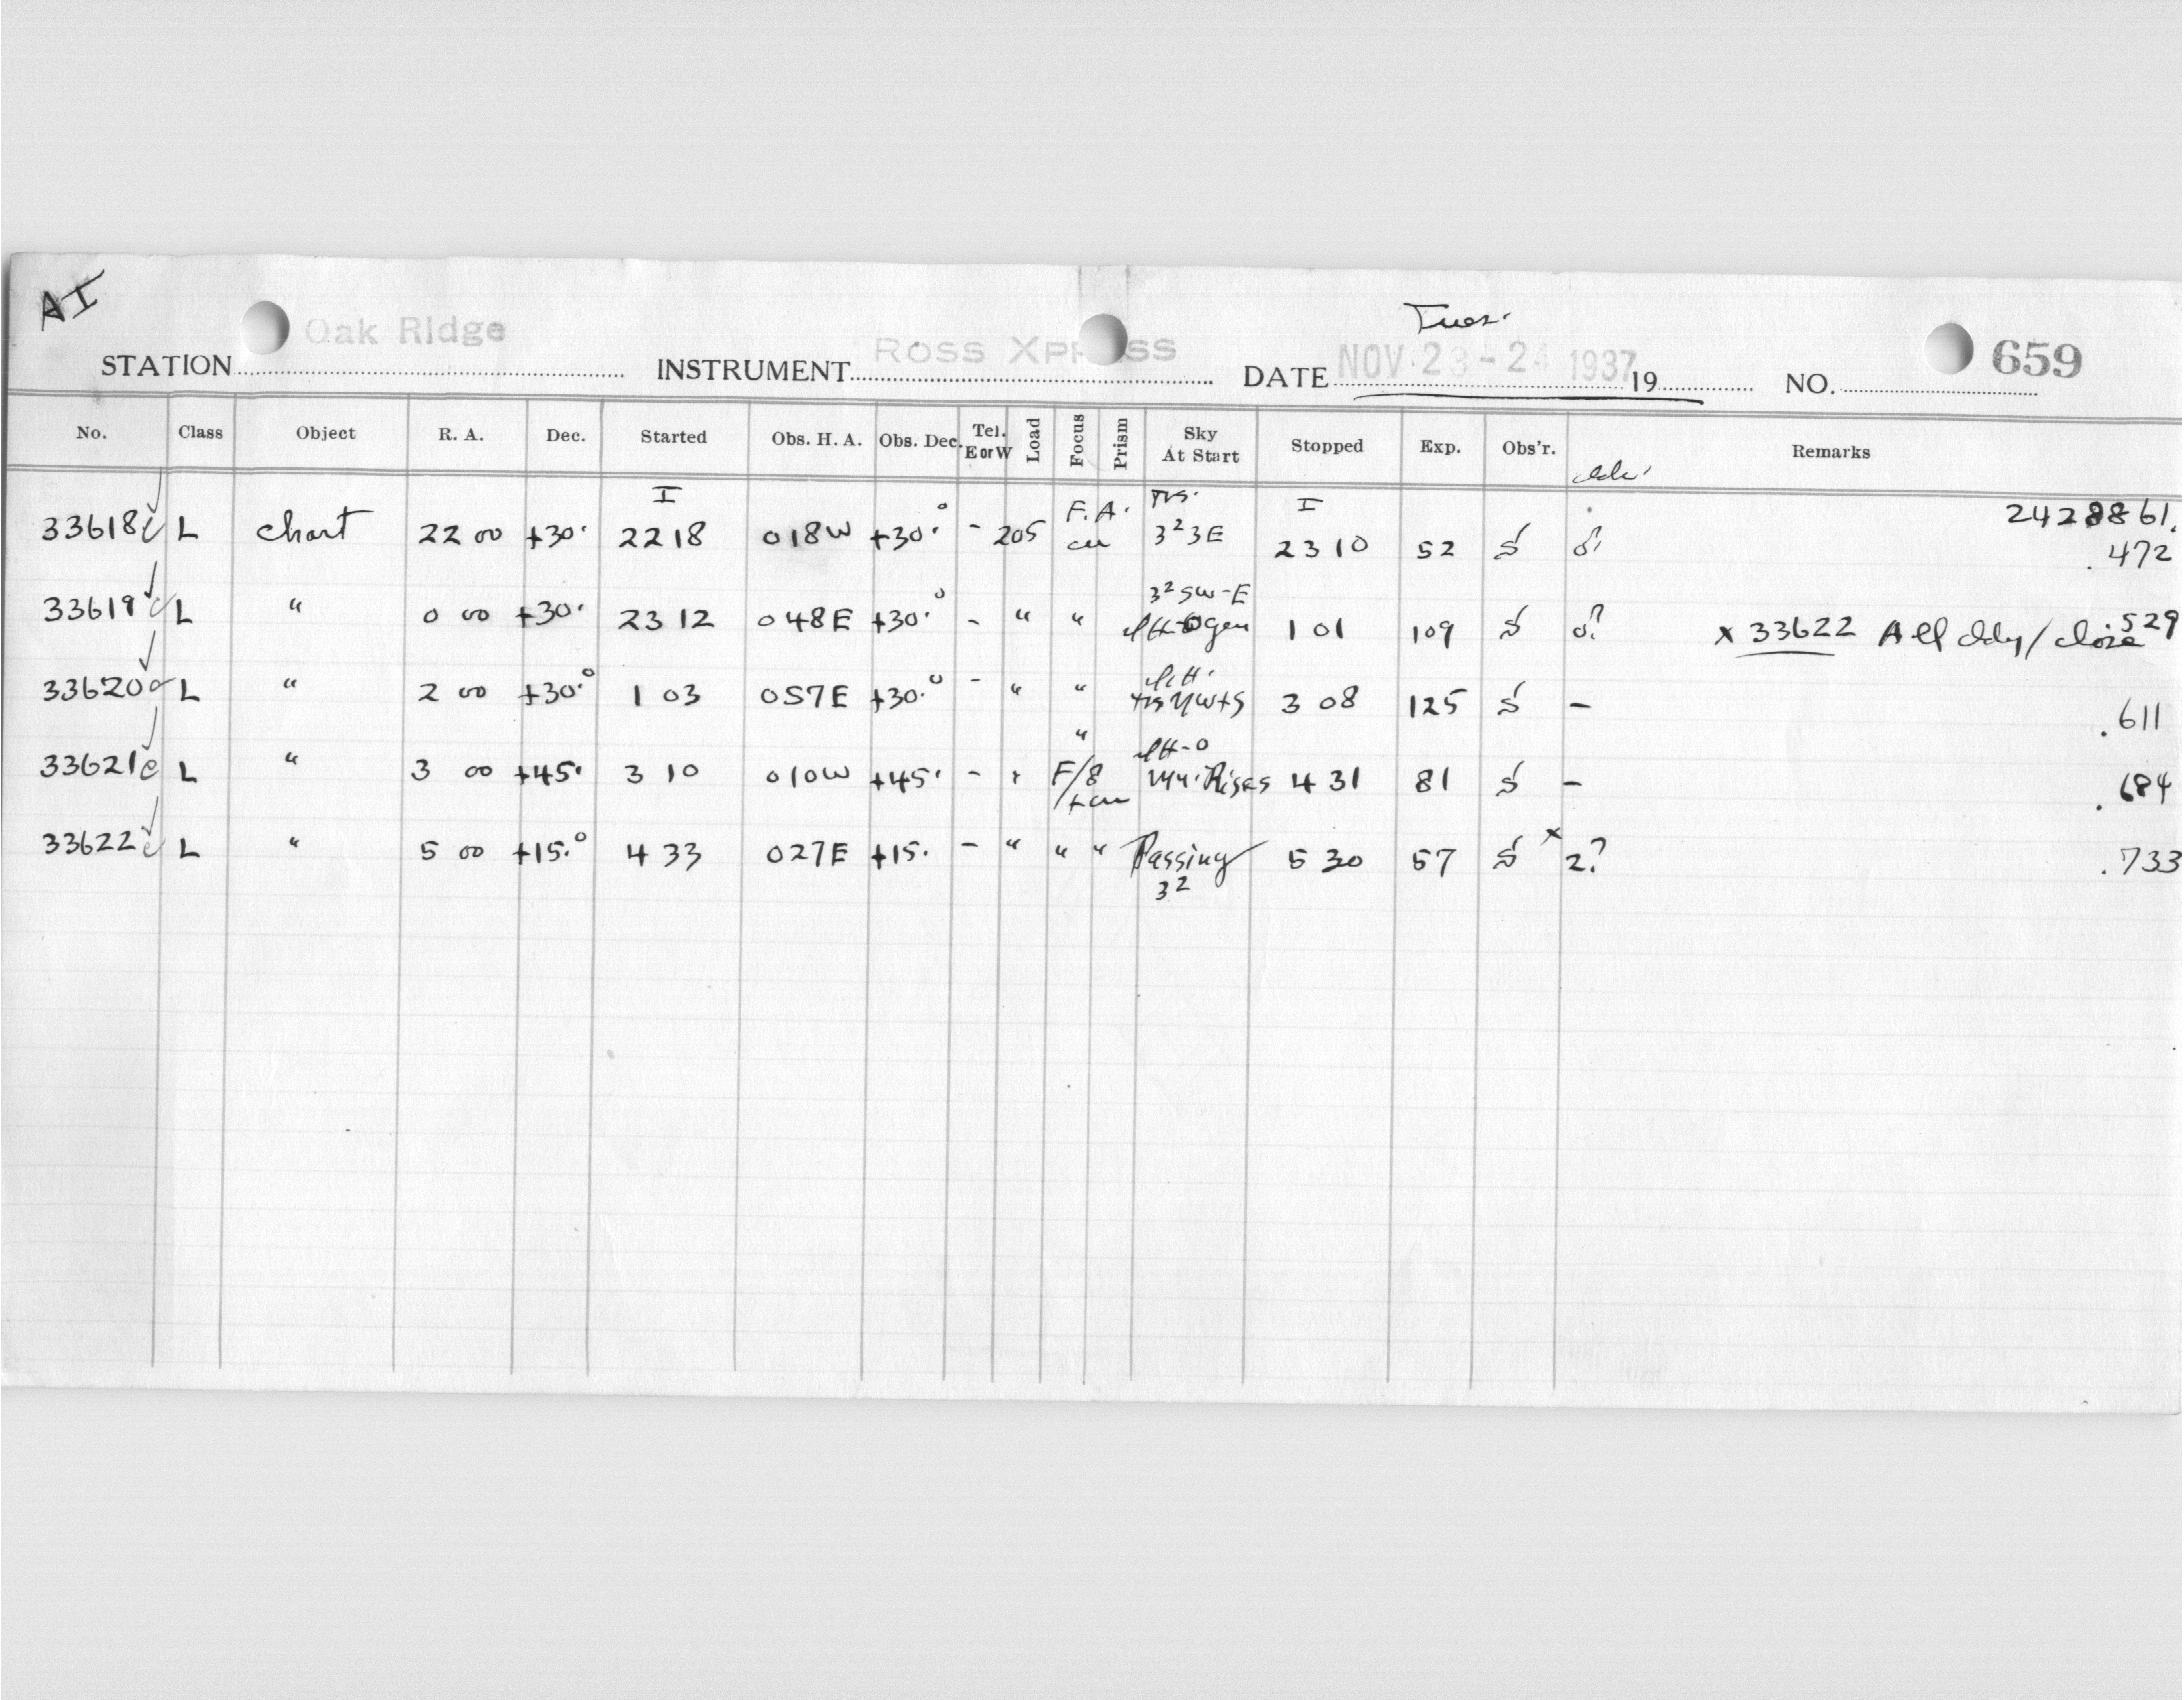 AI
Tues.
STATION Oak Ridge INSTRUMENT ROSS XPRESS DATE NOV 23-24 1937 19 NO. 659
No. Class Object R. A. Dec. Started Obs. H. A. Obs. Dec. Tel. E or W Load Focus Prism Sky At Start Stopped Exp. Obs'r. Remarks
33618 L chart 22 00 +30° I 22 18 0 18 W +30° - 205 F.A. 3² 3E I 23 10 52 S 0? 2428861. .472
33619 L " 0 00 +30° 23 12 0 48 E +30° - " " 3² SW-E 1 01 109 S 0? x 33622 All cldy/close .529
33620 L " 2 00 +30° 1 03 0 57 E +30° - " " 3 08 125 S - .611
33621 L " 3 00 +45° 3 10 0 10 W +45° - " " F/8 Rises 4 31 81 S - .684
33622 L " 5 00 +15° 4 33 0 27 E +15° - " " " Passing 3² 5 30 57 S x 2? .733